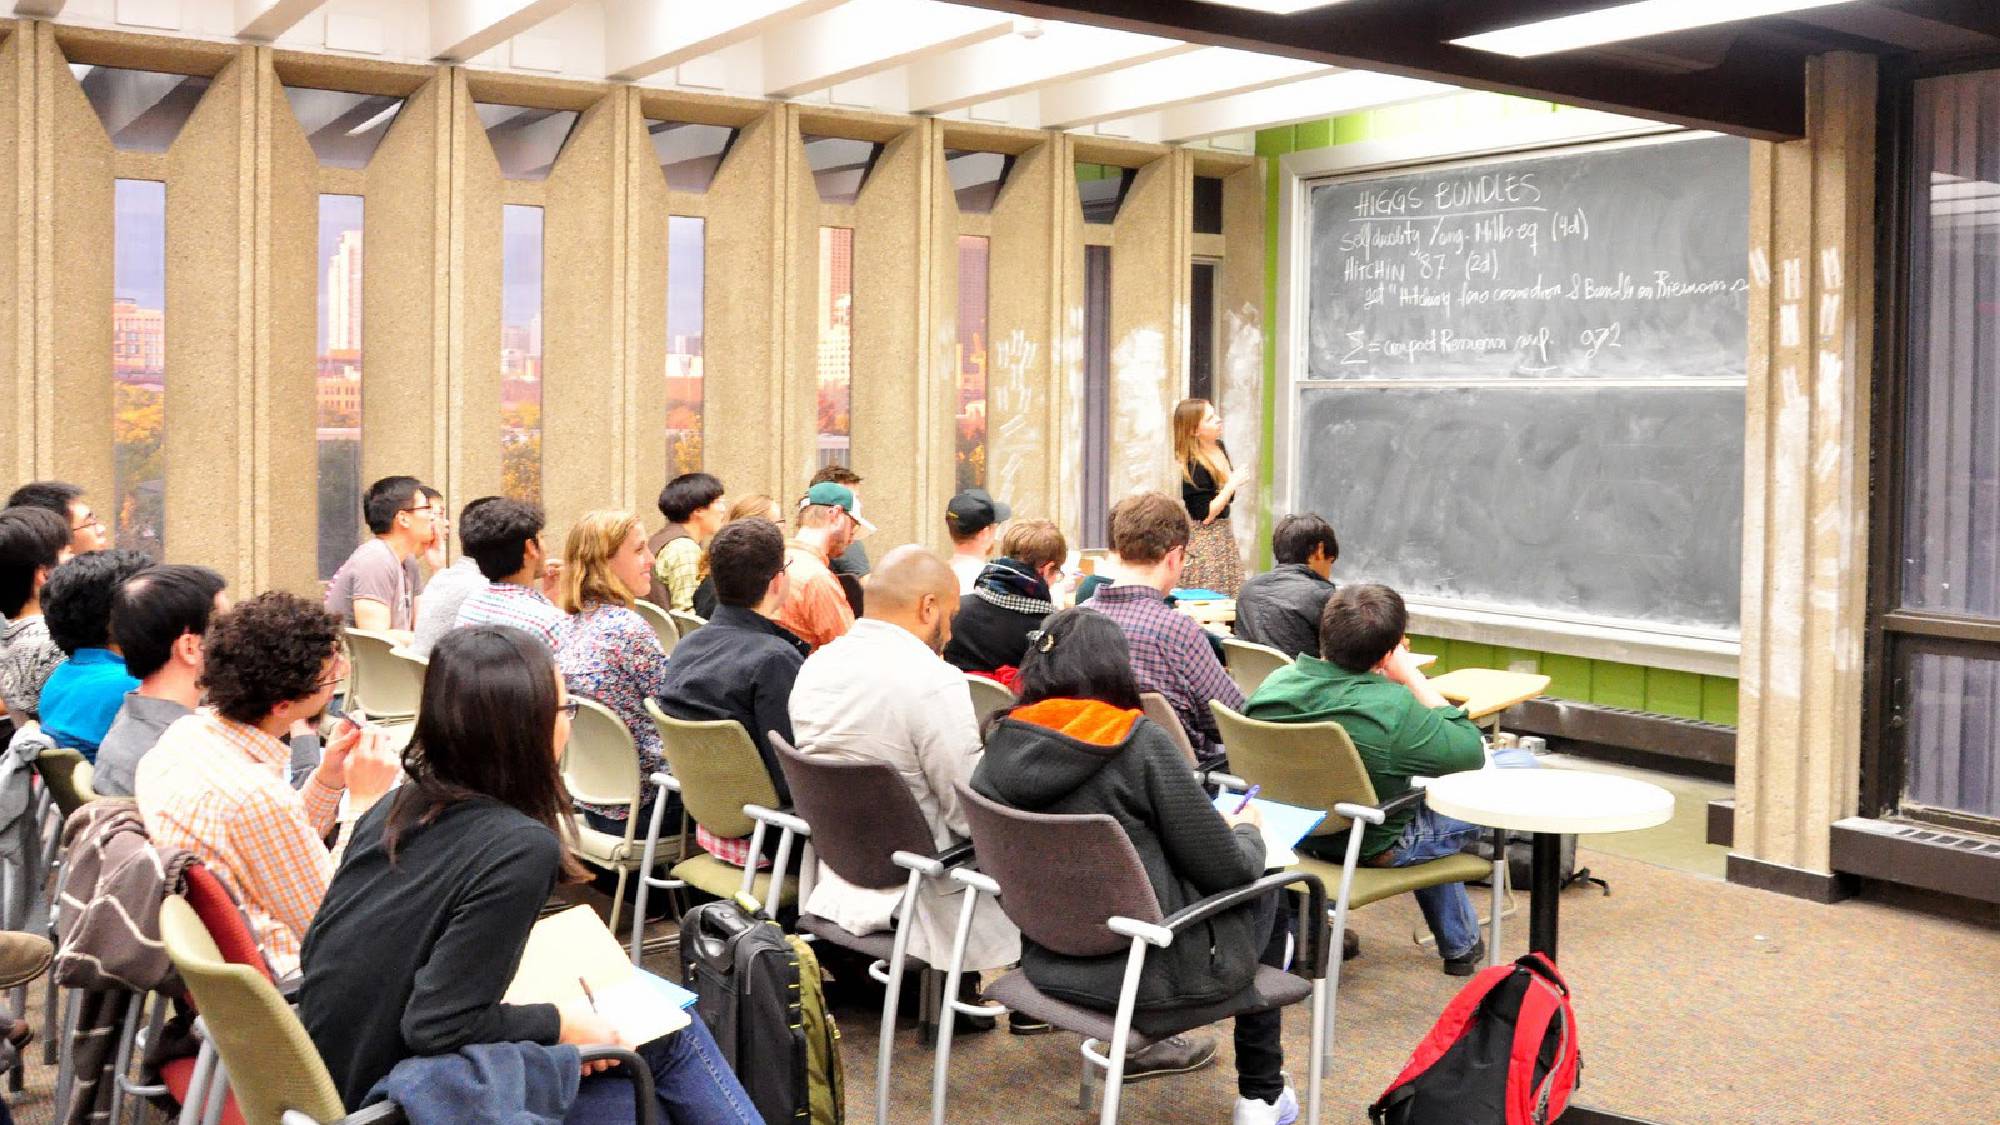 HIGGS BUNDLES
Selfduality Yang-Mills eq (4d)
HITCHIN '87 (2d)
get "Hitching for a connection & Bundle on Riemann
Σ = compact Riemann surf. g≥2